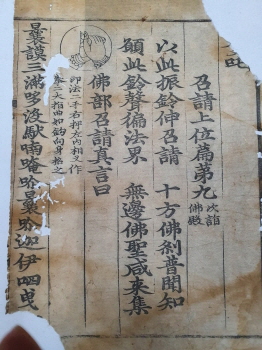 召請上位篇第九 次詣佛殿
以此振鈴伸召請 十方佛刹普聞知
願此鈴聲徧法界 無邊佛聖咸來集
佛部召請真言曰
印法二手右押左内相叉作
拳二大指曲如鈎向身招之
曩謨三滿多沒馱喃唵 曩 迦伊呬曳